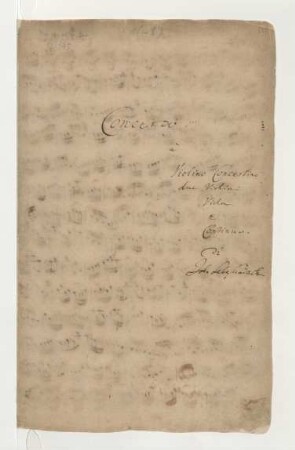 Concerto
a
Violino Concertino
due Violini
Viola
e
Continuo
di